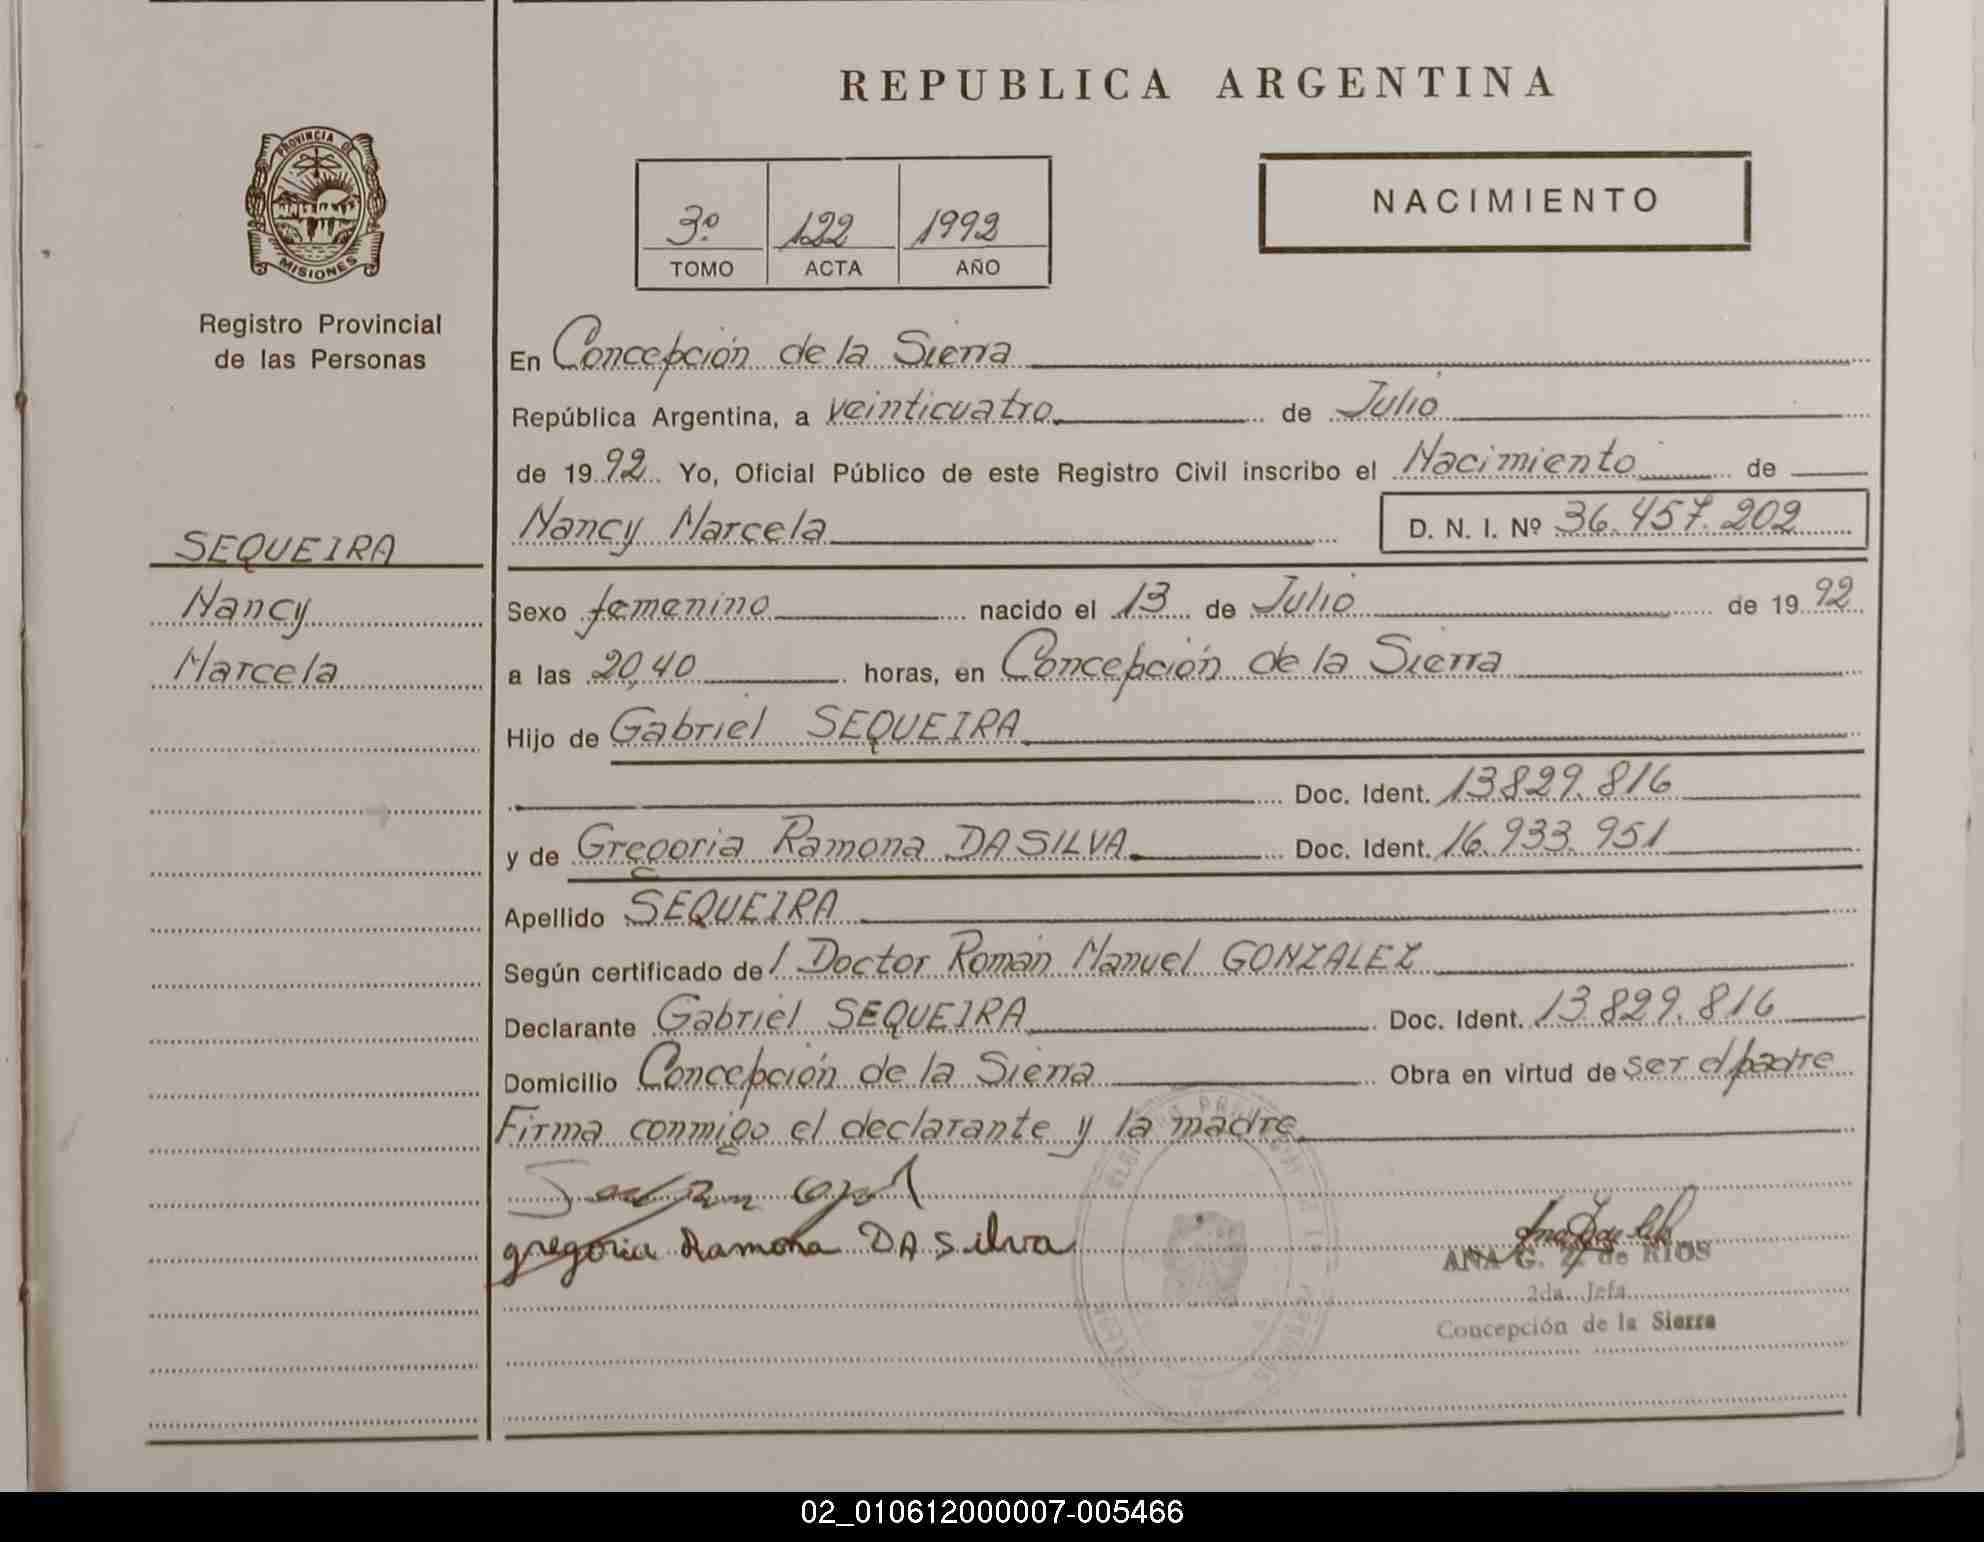 REPUBLICA ARGENTINA
PROVINCIA DE
MISIONES
Registro Provincial
de las Personas
3º 122 1992
TOMO ACTA AÑO
NACIMIENTO
SEQUEIRA
Nancy
Marcela
En Concepción de la Sierra
República Argentina, a veinticuatro de Julio
de 1992 Yo, Oficial Público de este Registro Civil inscribo el Nacimiento de
Nancy Marcela D. N. I. Nº 36.457.202
Sexo femenino nacido el 13 de Julio de 1992
a las 20,40 horas, en Concepción de la Sierra
Hijo de Gabriel SEQUEIRA
Doc. Ident. 13.829.816
y de Gregoria Ramona DA SILVA Doc. Ident. 16.933.951
Apellido SEQUEIRA
Según certificado de / Doctor Román Manuel GONZALEZ
Declarante Gabriel SEQUEIRA Doc. Ident. 13.829.816
Domicilio Concepción de la Sierra Obra en virtud de ser el padre
Firma conmigo el declarante y la madre
gregoria Ramona DA Silva
ANA G. de RIOS
2da. Jefa
Concepción de la Sierra
02_010612000007-005466